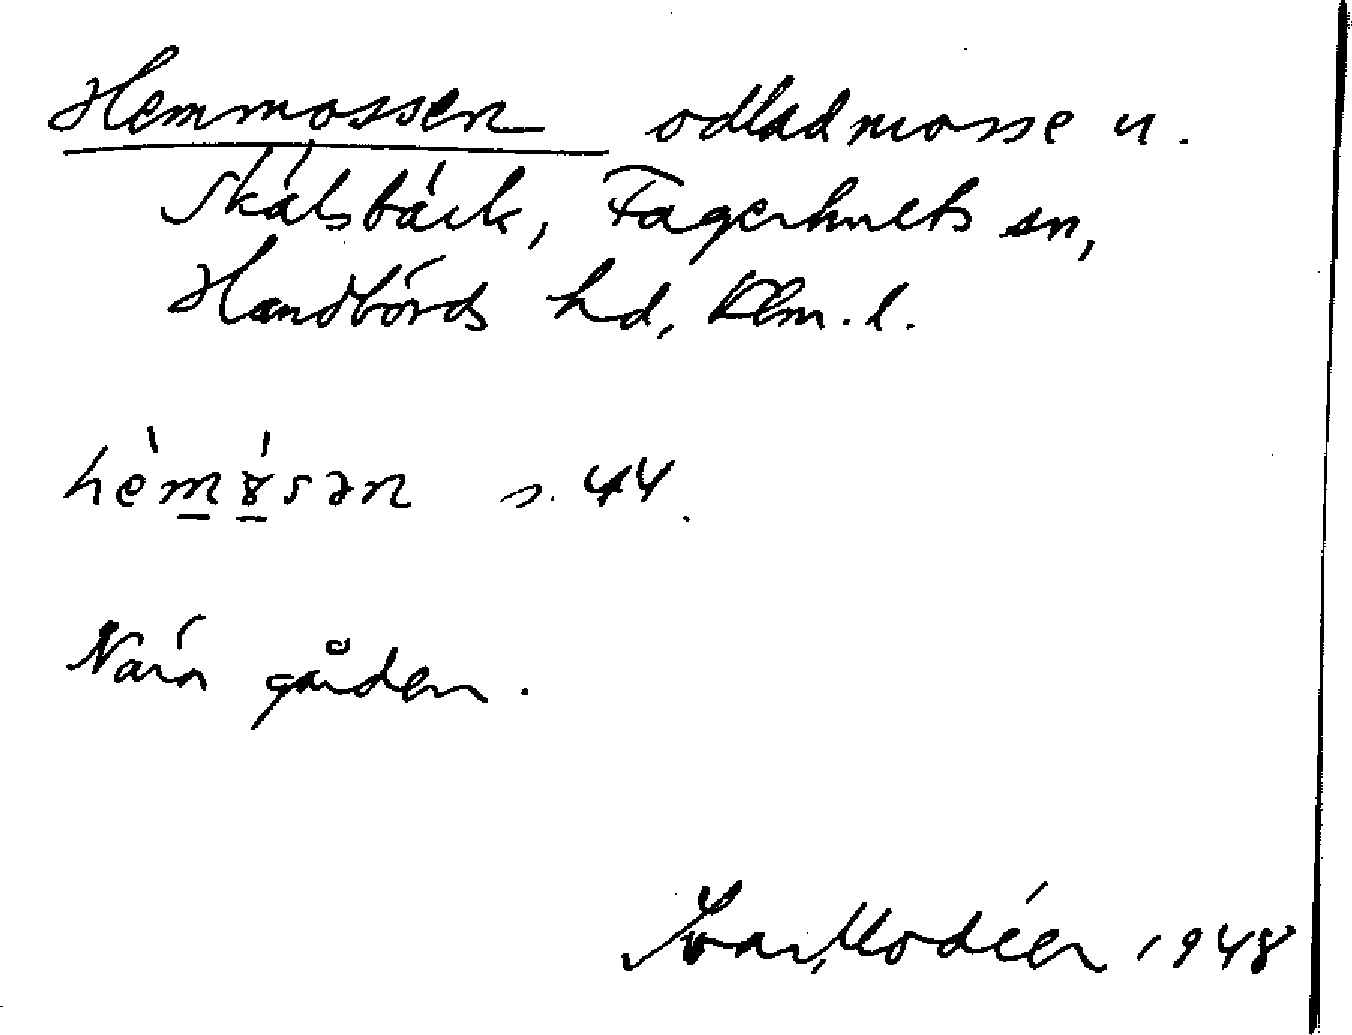 Hemmossen odlad mosse u.
Skälsbäck, Fagerhults sn,
Handbörds hd, Klm. l.
s. 44.
Nära gården.
Ivar Modéer 1948